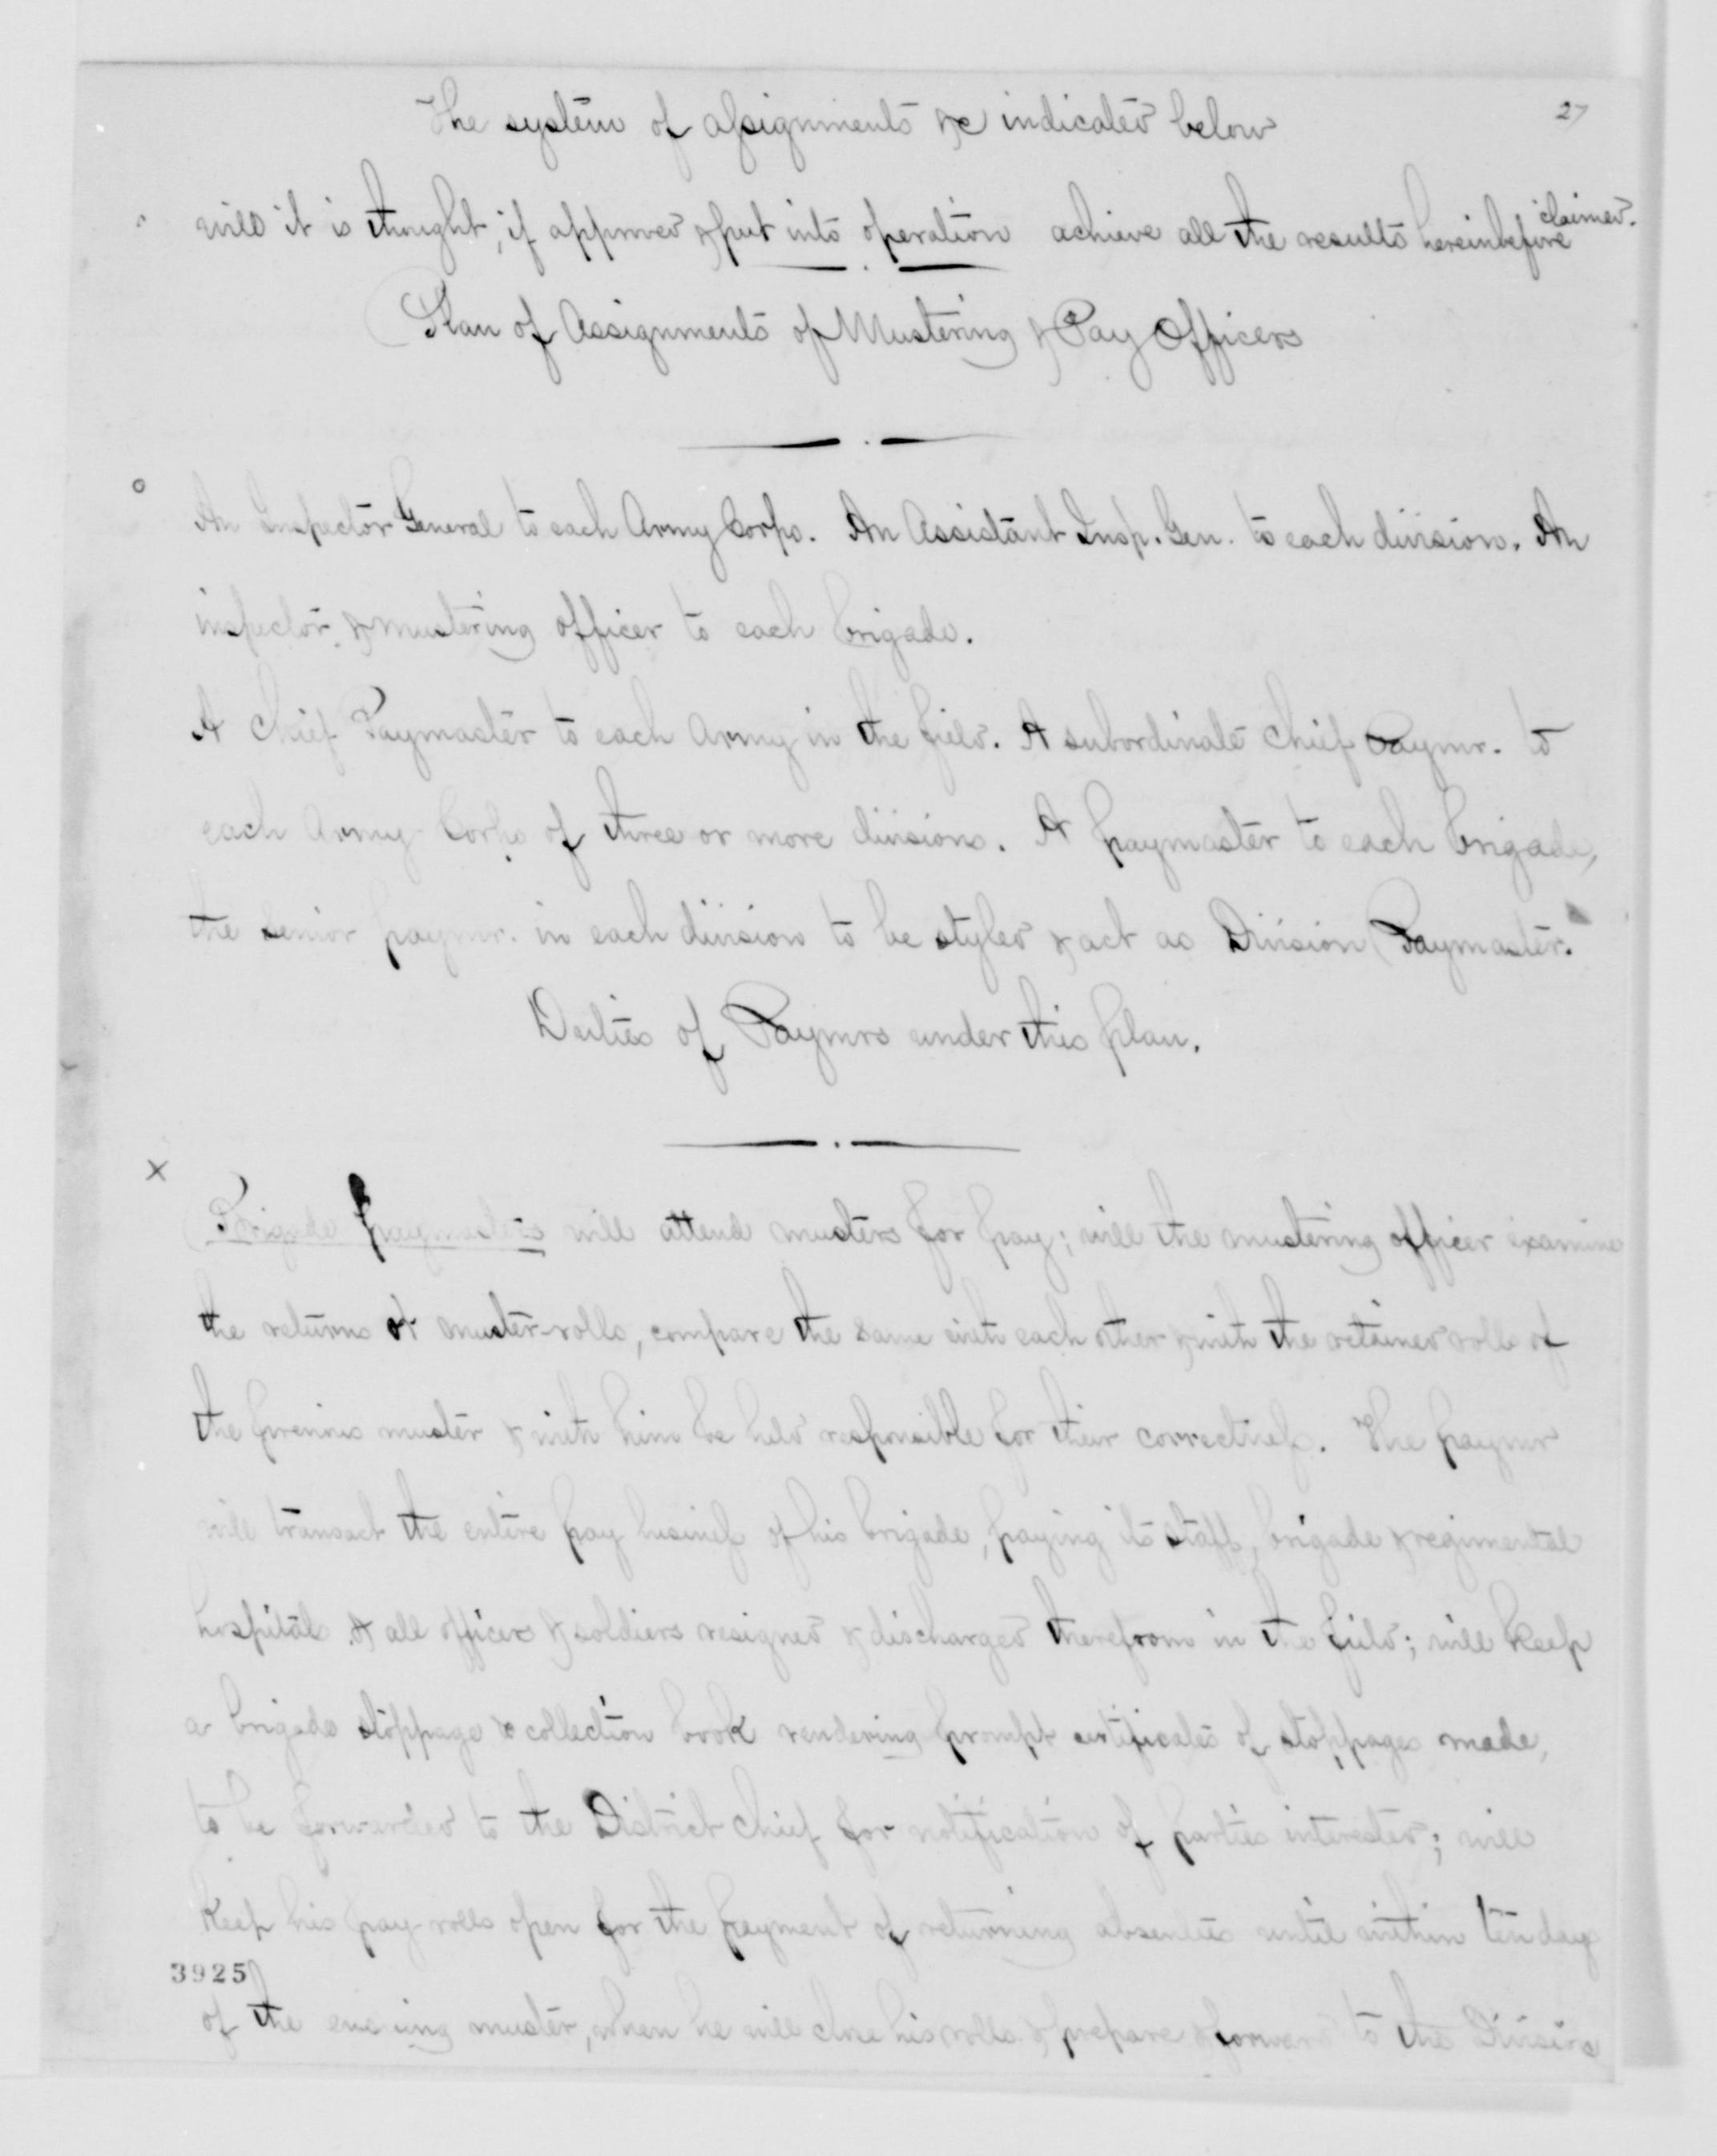 27
The system of assignments &c indicated below
will it is thought, if approved & put into operation achieve all the results hereinbefore claimed.
Plan of Assignments of Mustering & Pay Officers
An Inspector General to each Army Corps. An Assistant Insp. Gen. to each division. An
inspector & mustering officer to each brigade.
A Chief Paymaster to each Army in the field. A subordinate Chief Paymr. to
each Army Corps of three or more divisions. A paymaster to each brigade,
the senior paymr. in each division to be styled & act as Division Paymaster.
Duties of Paymrs under this plan.
x
Brigade paymasters will attend musters for pay; will the mustering officer examine
the returns & muster-rolls, compare the same with each other & with the retained rolls of
the previous muster & with him be held responsible for their correctness. The paymr
will transact the entire pay business of his brigade, paying its staff, brigade & regimental
hospitals & all officers & soldiers resigned & discharged therefrom in the field; will keep
a brigade stoppage & collection book rendering prompt certificates of stoppages made,
to be forwarded to the District Chief for notification of parties interested; will
keep his pay-rolls open for the payment of returning absentees until within ten days
3925
of the ensuing muster, when he will close his rolls & prepare & forward to the Division